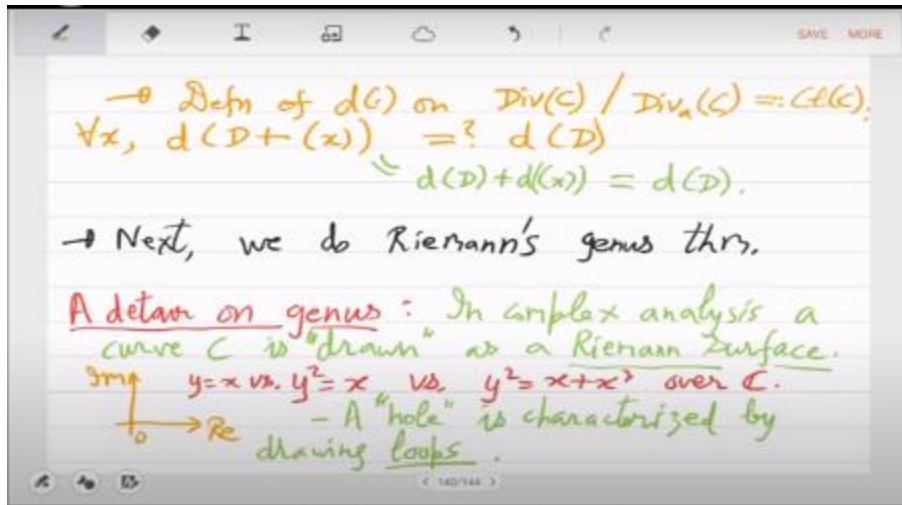 SAVE MORE
→ Defn of d(·) on Div(C) / Divₐ(C) =: Cl(C).
∀x, d(D+(x)) =? d(D)
= d(D)+d((x)) = d(D).
→ Next, we do Riemann's genus thm.
A detour on genus : In complex analysis a
curve C is "drawn" as a Riemann Surface.
Im y=x vs. y²=x vs. y²=x+x³ over ℂ.
0 Re - A "hole" is characterized by
drawing loops.
< 140/144 >